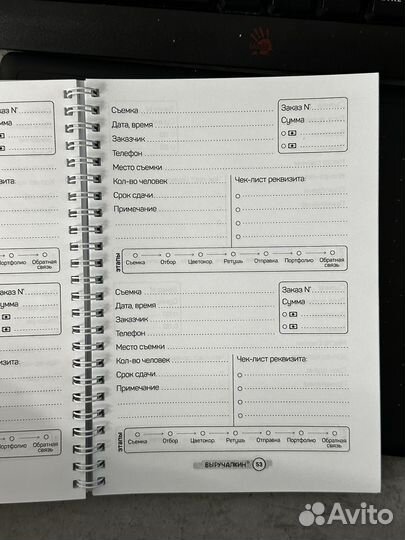 Съемка
Заказ N°
Дата, время
Сумма
Заказчик
Телефон
Место съемки
Кол-во человек
Чек-лист реквизита:
Срок сдачи
Примечание
этапы
Съемка Отбор Цветокор. Ретушь Отправка Портфолио Обратная
связь
Съемка
Заказ N°
Дата, время
Сумма
Заказчик
Телефон
Место съемки
Кол-во человек
Чек-лист реквизита:
Срок сдачи
Примечание
этапы
Съемка Отбор Цветокор. Ретушь Отправка Портфолио Обратная
связь
ВЫРУЧАЛКИН 53
Обратная
связь
Обратная
связь
Avito